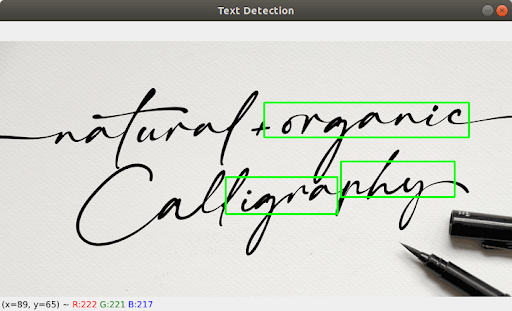 Text Detection
natural + organic
Calligraphy
(x=89, y=65) ~ R:222 G:221 B:217